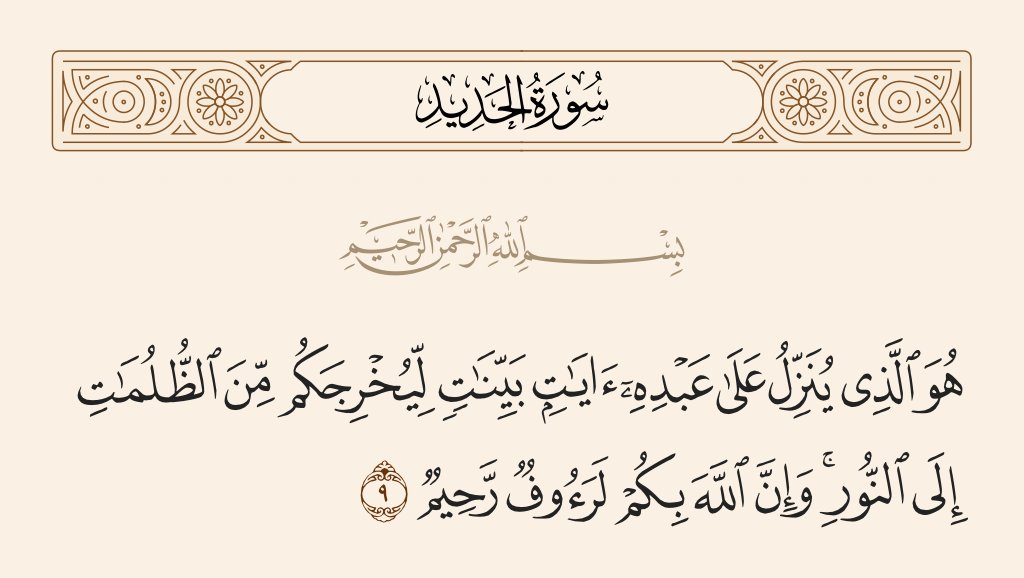 سُورَةُ الحَدِيدِ
بِسْمِ ٱللَّهِ ٱلرَّحْمَٰنِ ٱلرَّحِيمِ
هُوَ ٱلَّذِى يُنَزِّلُ عَلَىٰ عَبْدِهِۦٓ ءَايَٰتٍۭ بَيِّنَٰتٍ لِّيُخْرِجَكُم مِّنَ ٱلظُّلُمَٰتِ
إِلَى ٱلنُّورِ ۚ وَإِنَّ ٱللَّهَ بِكُمْ لَرَءُوفٌ رَّحِيمٌ ٩